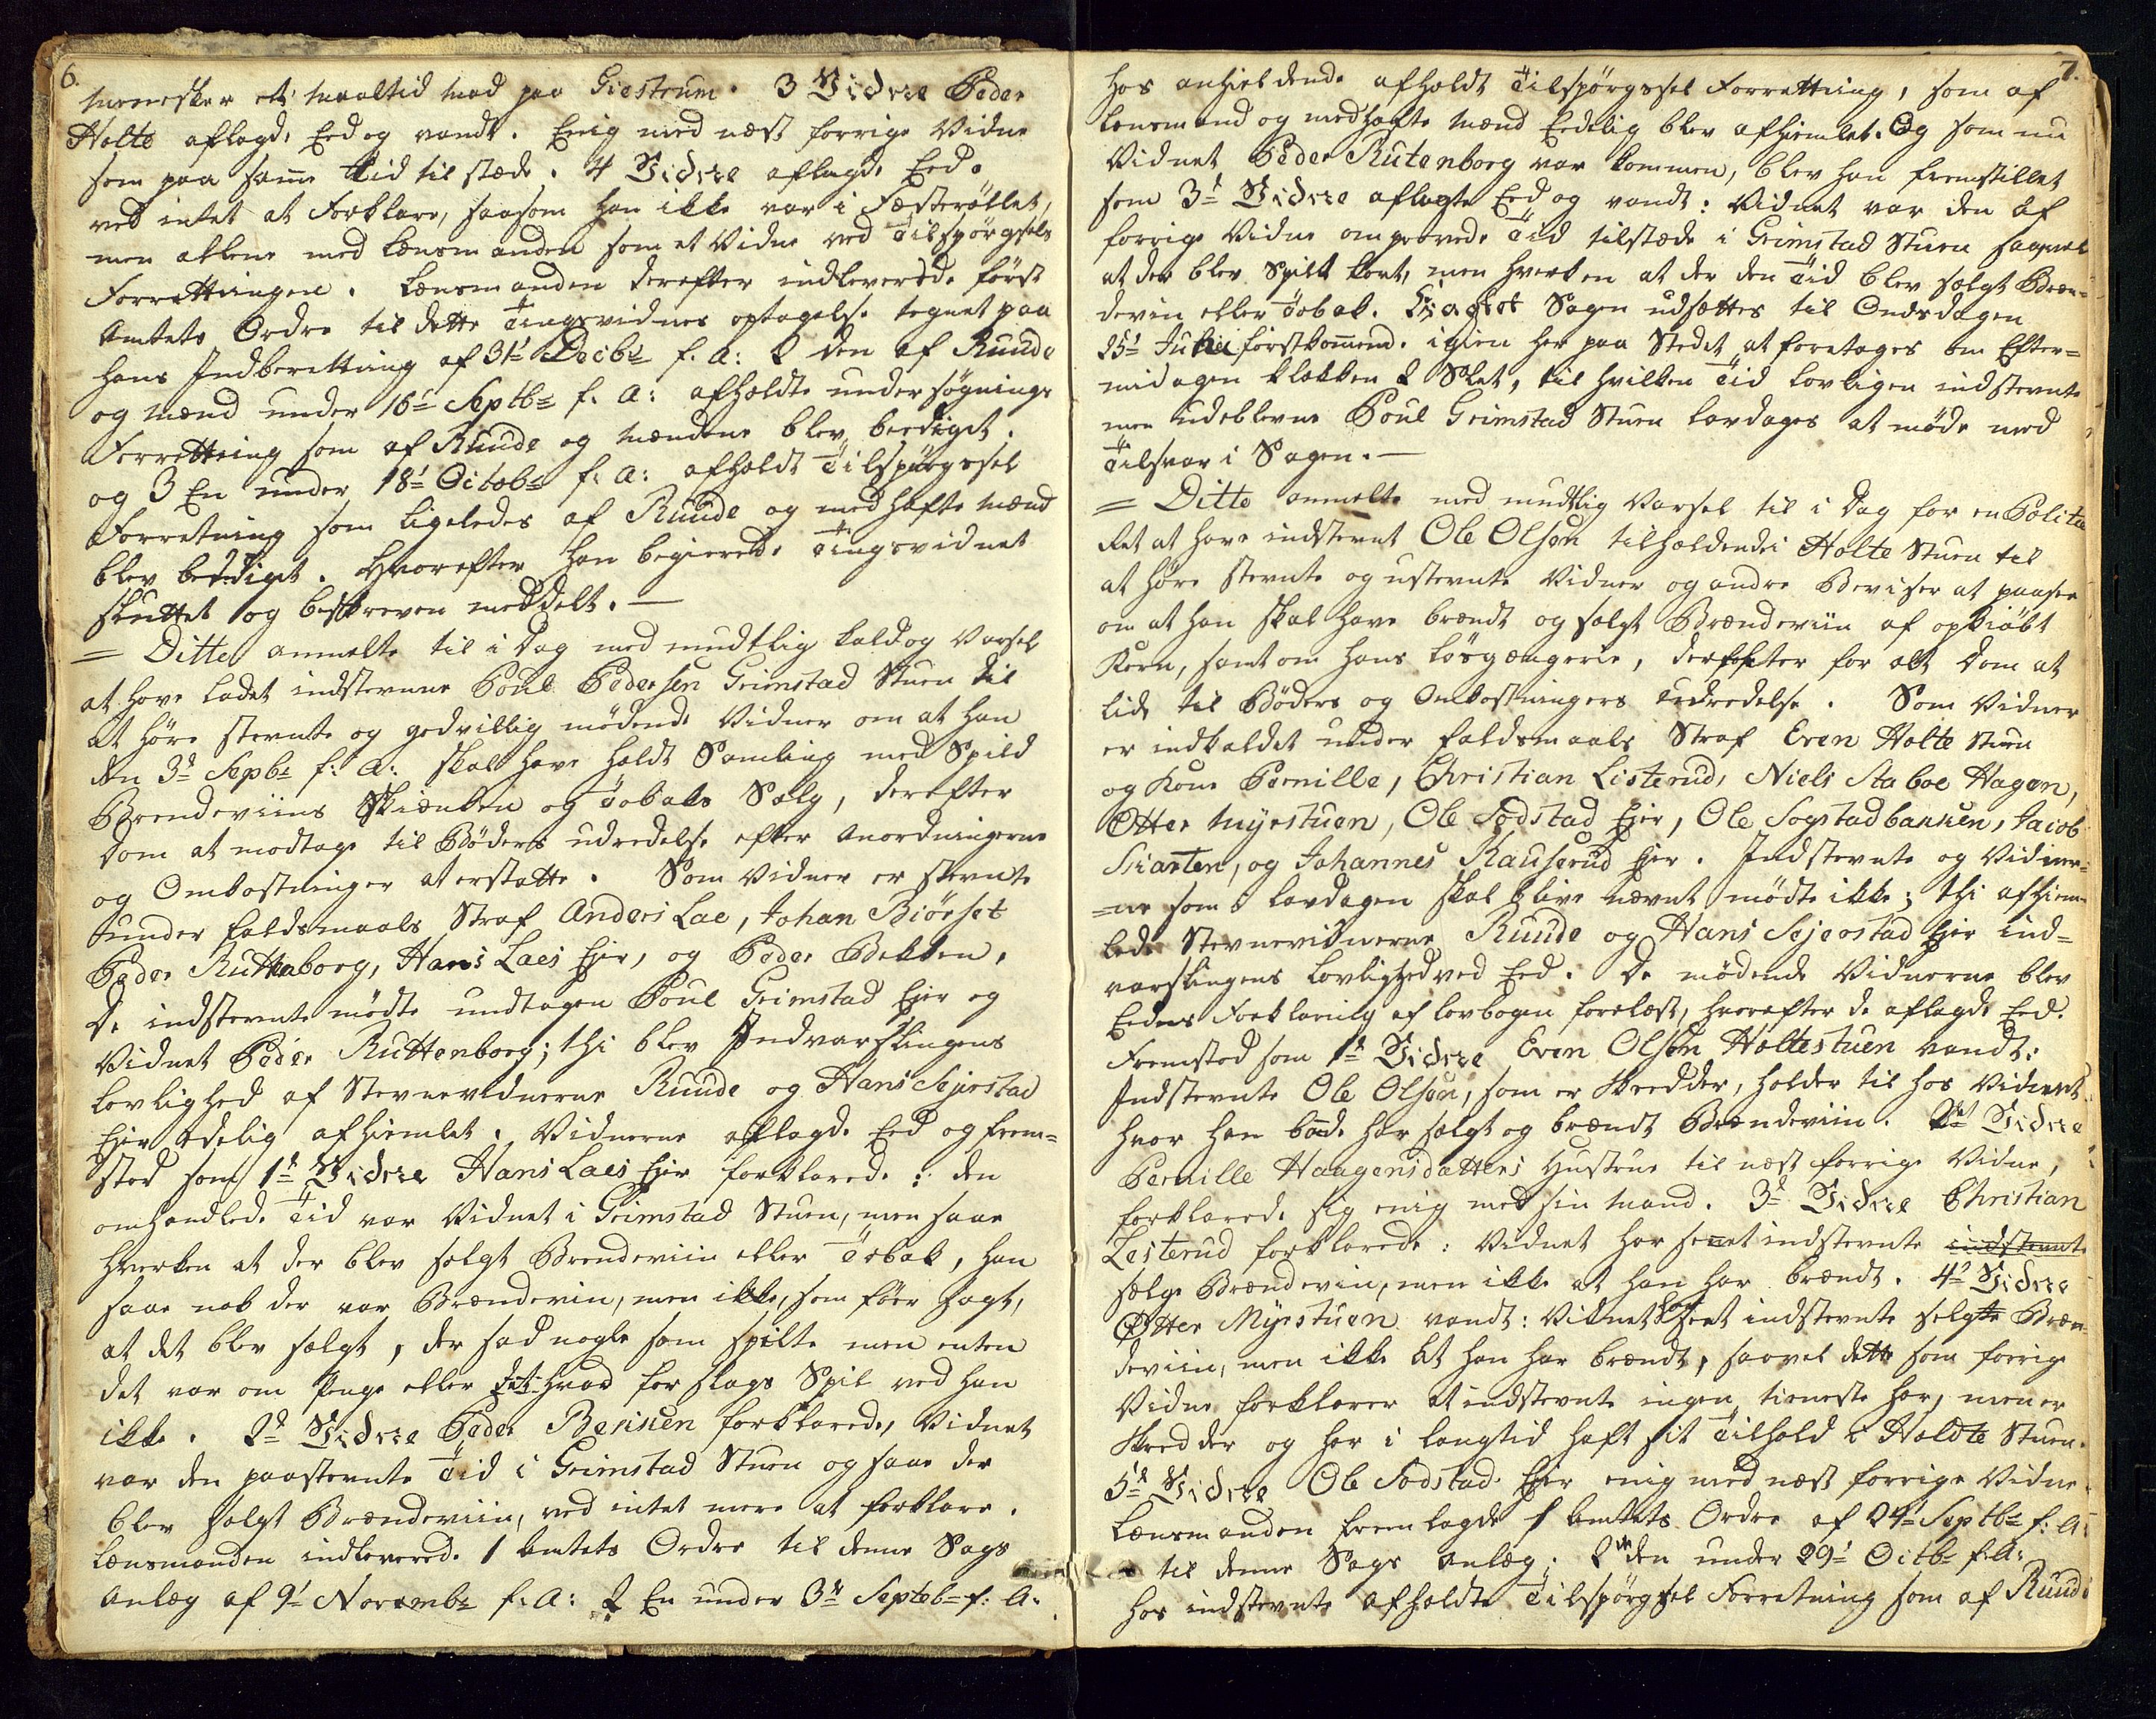 6.
Mennesker et maaltid mad paa Giestrum. 3 Vidne Peder
Holte aflagde Eed og vandt. Enig med næst forrige Vidne
som paa samme tid til stæde. 4 Vidne aflagde Eed.
ved intet at Forklare, saasom han ikke var i Fæsteröllet,
men allene med Lænsmanden som et Vidne ved Tilspörgsels
Forrettningen. Lænsmanden derefter indleverede først
Amtets Ordre til dette Tingsvidnes optagelse tegnet paa
hans Indberettning af 31t Decibr f. a: 2 den af Ruude
og mænd under 16t Septbr f. a: afholdte undersøgnings
Forrettning som af Ruude og mændene blev beediget.
og 3 En under 18t Octobr f: a: afholdt Tilspörgssel
Forretning som ligeledes af Ruude og medhafte Mænd
blev beediget. Hvorefter han begierede Tingsvidnet
sluttet og beskreven meddelt. —
= Ditto anmelte til i Dag med mundtlig kald og Varsel
at have ladet indstevnne Poul Pedersen Grimstad Stuen til
at høre stevnte og godvillig mødende Vidner om at han
den 3de Sepbr f: A: skal have holdt Samling med Spild
Brendeviins Skienken og Tobaks Salg, derefter
Dom at modtage til Bøders udredelse efter Anordningerne
og Omkostninger at erstatte. Som Vidner er stevnte
under faldsmaals Straf Anders Lae, Johan Biörset
Peder Ruttenborg, Hans Laes Eier, og Peder Bekken.
De indstevnte mødte undtagen Poul Grimstad Eier og
Vidnet Peder Ruttenborg; thi blev Indvarslingens
Lovlighed af Stevnevidnerne Ruude og Hans Sejrstad
Eier Edelig afhiemlet. Vidnerne aflagde Eed og frem=
stod som 1te Vidne Hans Laes Eier forklarede: den
omhandlede Tid var Vidnet i Grimstad Stuen, men saae
hverken at der blev solgt Brendeviin eller Tobak, han
saae nok der var Brændeviin, men ikke, som føer sagt,
at det blev solgt, der sad nogle som spilte men enten
det var om Penge eller hvad for slags Spil ved han
ikke. 2de Vidne Peder Bekken forklarede, Vidnet
var den paastevnte Tid i Grimstad Stuen og saae der
blev solgt Brændeviin, ved intet mere at forklare.
Lænsmanden indleverede 1 Amtets Ordre til denne Sags
Anlæg af 9t Novembr f: A: 2 En under 3de Septbr f: A:
7.
hos anhieldende afholdt Tilspörgssel Forrettning, som af
Lensmand og medhafte Mænd Eedelig blev afhiemlet. Og som nu
Vidnet Peder Rutenborg var kommen, blev han fremstillet
som 3de Vidne aflagte Eed og vandt: Vidnet var den af
forrige Vidne omprøvede Tid tilstæde i Grimstad Stuen saavel
at der blev Spillt kort, men hverken at der den Tid blev solgt Bræn=
deviin eller Tobak. Eragtet Sagen udsættes til Ondsdagen
25t Julii førstkommende igien her paa Stedet at foretages om Efter=
midagen Klokken 2 Slet, til hvilken Tid lovligen indstevnte
men udeblevne Poul Grimstad Stuen lavdages at møde med
Tilsvar i Sagen. —
= Ditto anmelte med mundtlig Varsel til i Dag for en Politie
Ret at have indstevnt Ole Olsøn tilholdende i Holte Stuen til
at høre stevnte og ustevnte Vidner og andre Beviser at paasee
om at han skal have brændt og solgt Brændeviin af opkiøbt
Korn, samt om hans løsgængerie, derefter for alt Dom at
lide til Bøders og Omkostningers udredelse. Som Vidner
er indkaldet under faldsmaals Straf Even Holte Stuen
og Kone Pernille, Christian Listerud, Niels Staboe Hagen,
Otter Myrstuen, Ole Sodstad Eier, Ole Sogstadbakken, Jacob
, og Johannes Kauserud Eier. Indstevnte og Vidner=
=ne som i lavdagen skal blive nævnt mødte ikke; thi afhiem=
lede Stevnevidnerne Ruude og Hans Sejerstad Eier ind=
varslingens Lovlighed ved Eed. De mødende Vidnerne blev
Eedens Forklaring af lovbogen forelæst, hvorefter de aflagde Eed.
Fremstod som 1te Vidne Even Olsøn Holtestuen vandt:
Indstevnte Ole Olsøn, som er Skredder, holder til hos Vidnet
hvor han baade har solgt og brændt Brændeviin. 2det Vidne
Pernille Haagensdatter Hustrue til næst forrige Vidne,
forklarede sig enig med sin mand. 3de Vidne Christian
Listerud forklarede: Vidnet har seet indstevnte indstevnte
sælge Brændeviin, men ikke at han har brændt. 4de Vidne
Otter Myrstuen vandt: Vidnet har seet indstevnte selgte Bræn=
deviin, men ikke at han har brændt, saavel dette som forrige
Vidne forklarer at indstevnte ingen tieneste har, men er
Skredder og har i langtid haft sit Tilhold i Holdte Stuen.
5te Vidne Ole Sodstad Eier enig med næst forrige Vidne.
Lænsmanden fremlagde 1 Amtets Ordre af 24t Septbr f: A:
til denne Sags Anlæg. 2 den under 29t Octbr f: A:
hos indstevnte afholdte Tilspörgsel Forretning som af Ruude